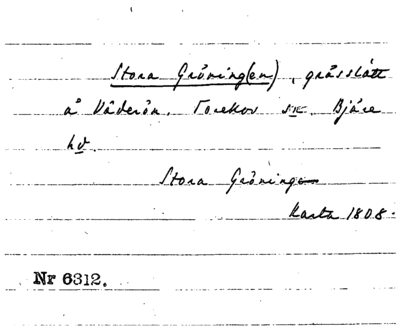 Stora Gröning(en), grässlätt
å Väderön. Torekov sn. Bjäre
hd.
Stora Gröninge
Karta 1808.
Nr 6312.